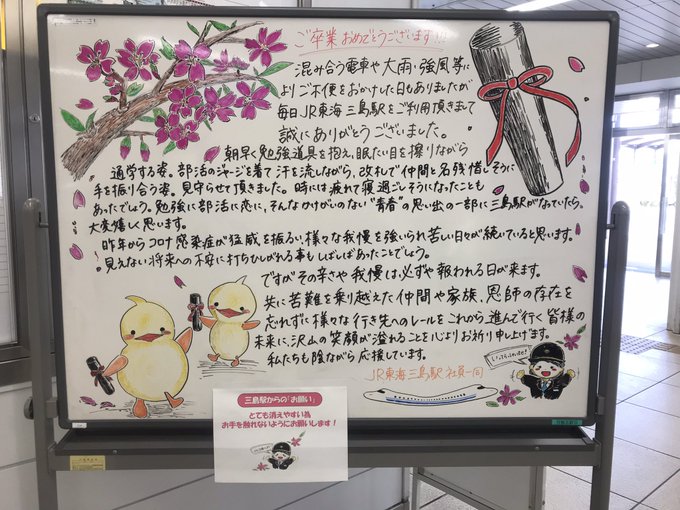 ご卒業おめでとうございます!!!
混み合う電車や大雨・強風等に
よりご不便をおかけした日もありましたが
毎日JR東海三島駅をご利用頂きまして
誠にありがとうございました。
朝早く勉強道具を抱え、眠たい目を擦りながら
通学する姿。部活のジャージを着て汗を流しながら、改札で仲間と名残惜しそうに
手を振り合う姿。見守らせて頂きました。時には疲れて寝過ごしそうになったことも
あったでしょう。勉強に部活に恋に、そんなかけがいのない"青春"の思い出の一部に三島駅がなっていたら、
大変嬉しく思います。
昨年からコロナ感染症が猛威を振るい、様々な我慢を強いられ苦しい日々が続いていると思います。
見えない将来への不安に打ちひしがれる事もしばしばあったことでしょう。
ですがその辛さや我慢は必ずや報われる日が来ます。
共に苦難を乗り越えた仲間や家族、恩師の存在を
忘れずに様々な行き先へのレールをこれから進んで行く皆様の
未来に、沢山の笑顔が溢れることを心よりお祈り申し上げます。
私たちも陰ながら応援しています。
JR東海三島駅社員一同
いってらっしゃい!
三島駅からの「お願い」
とても消えやすい為
お手を触れないようにお願いします!